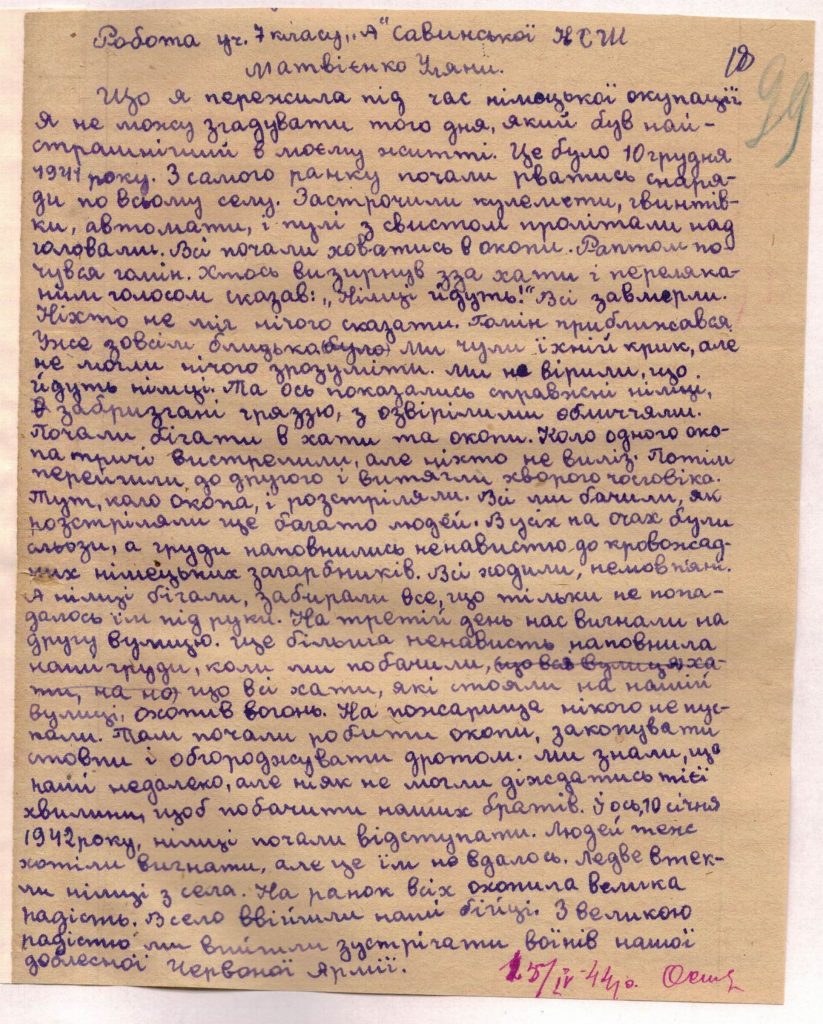 Робота уч. 7 класу „А" Савинської НСШ
Матвієнко Уляни.
18
99
Що я пережила під час німецької окупації.
Я не можу згадувати того дня, який був най-
страшнічий в моєму житті. Це було 10 грудня
1941 року. З самого ранку почали рватись снаря-
ди по всьому селу. Застрочили кулемети, гвинтів-
ки, автомати, і пулі з свистом пролітали над
головами. Всі почали ховатись в окопи. Раптом по-
чувся гомін. Хтось визирнув зза хати і переляка-
ним голосом сказав: „Німці йдуть!" Всі завмерли.
Ніхто не міг нічого сказати. Гомін приближався.
Уже зовсім блидька (було) ми чули їхній крик, але
не могли нічого зрозуміти. Ми не вірили, що
йдуть німці. Та ось показались справжні німці,
забризгані гряззю, з озвірілими обличчями.
Почали бігати в хати та окопи. Коло одного око-
па тричі вистрелили, але ніхто не виліз. Потім
перейшли до другого і витягли хворого чоловіка.
Тут, коло окопа, і розстріляли. Всі ми бачили, як
розстріляли ще багато людей. В усіх на очах були
сльози, а груди наповнились ненавистю до кровожад-
них німецьких загарбників. Всі ходили, немов п'яні.
А німці бігали, забирали все, що тільки не попа-
далось їм під руки. На третій день нас вигнали на
другу вулицю. Ще більша ненависть наповнила
наші груди, коли ми побачили, (що вся вулиця) ха-
ти, на но) що всі хати, які стояли на нашій
вулиці, охопив вогонь. На пожарища нікого не пус-
кали. Там почали робити окопи, закопувати
стовпи і обгороджувати дротом. Ми знали, що
наші недалеко, але ніяк не могли діждатись тієї
хвилини, щоб побачити наших братів. І ось, 10 січня
1942 року, німці почали відступати. Людей теж
хотіли вигнати, але це їм не вдалось. Ледве втек-
ли німці з села. На ранок всіх охопила велика
радість. В село ввійшли наші бійці. З великою
радістю ми вийшли зустрічати воїнів нашої
доблесної Червоної Армії.
15/IV-44 р.